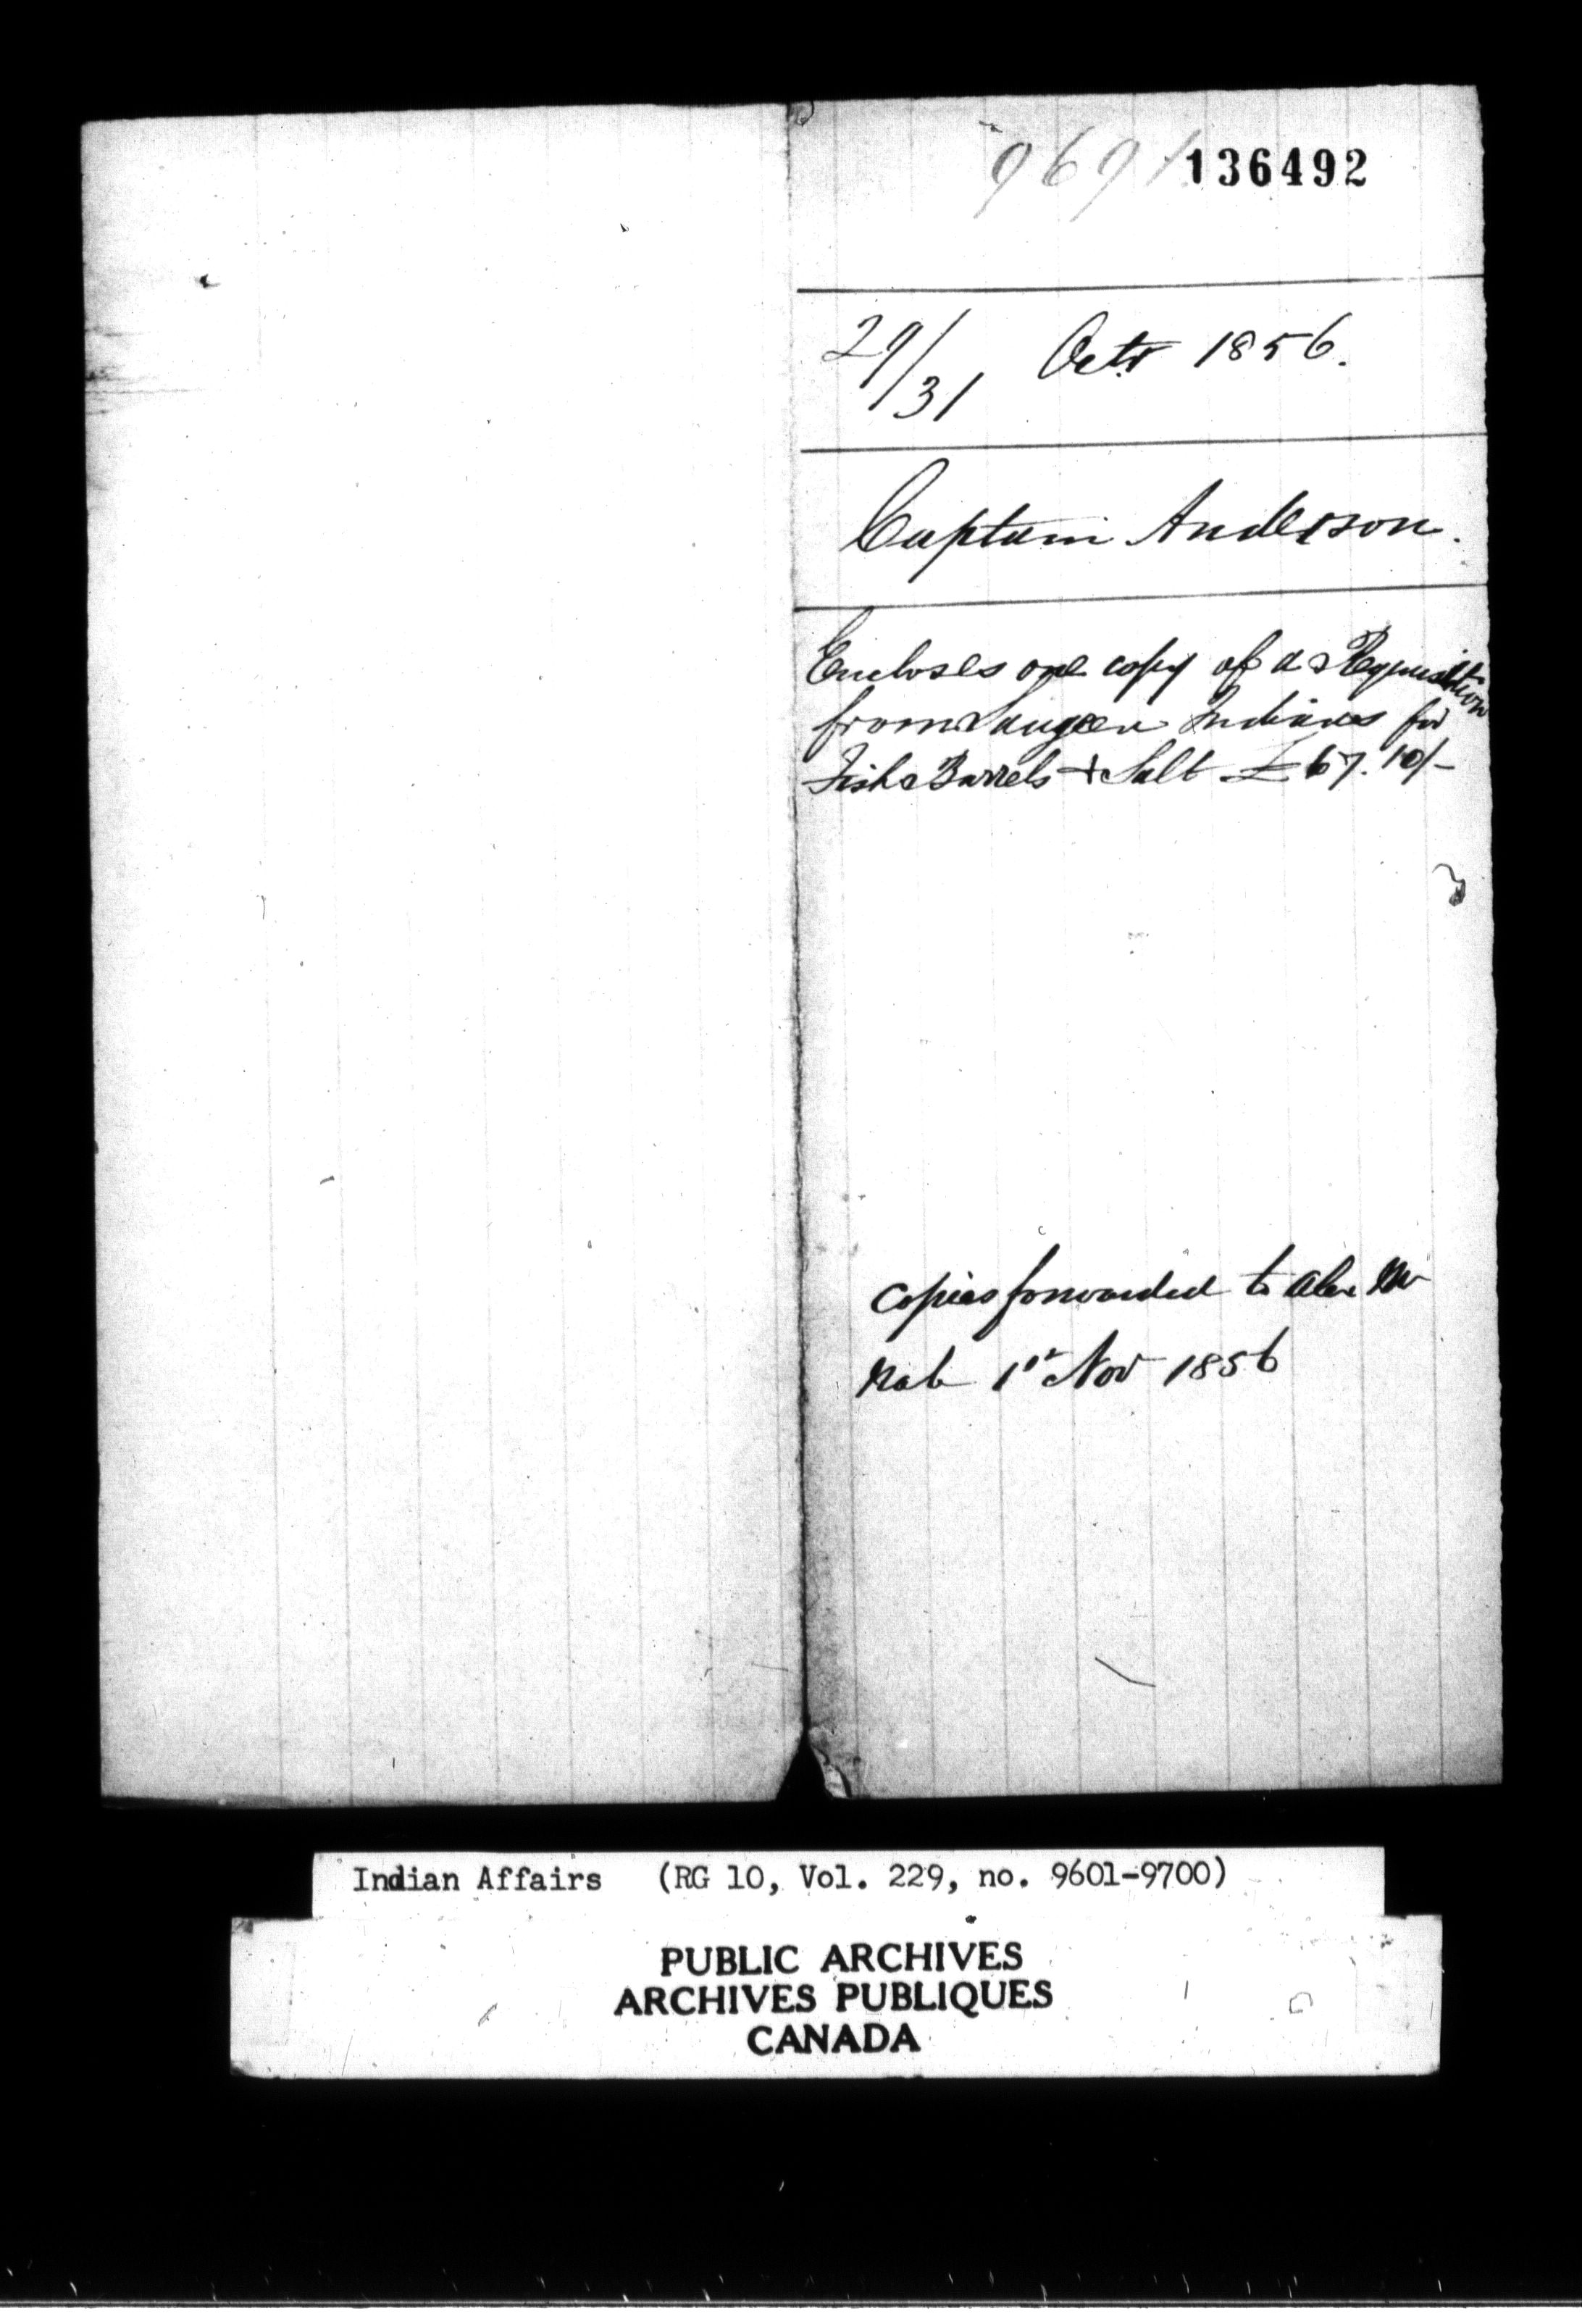 9691
136492
29/31 Octr 1856.
Captain Anderson.
Encloses one copy of a Requisition
from Saugeen Indians for
Fish Barrels + Salt £67.10/-
Copies forwarded to Alex Mc
Nab 1st Nov 1856
Indian Affairs (RG 10, Vol. 229, no. 9601-9700)
PUBLIC ARCHIVES
ARCHIVES PUBLIQUES
CANADA